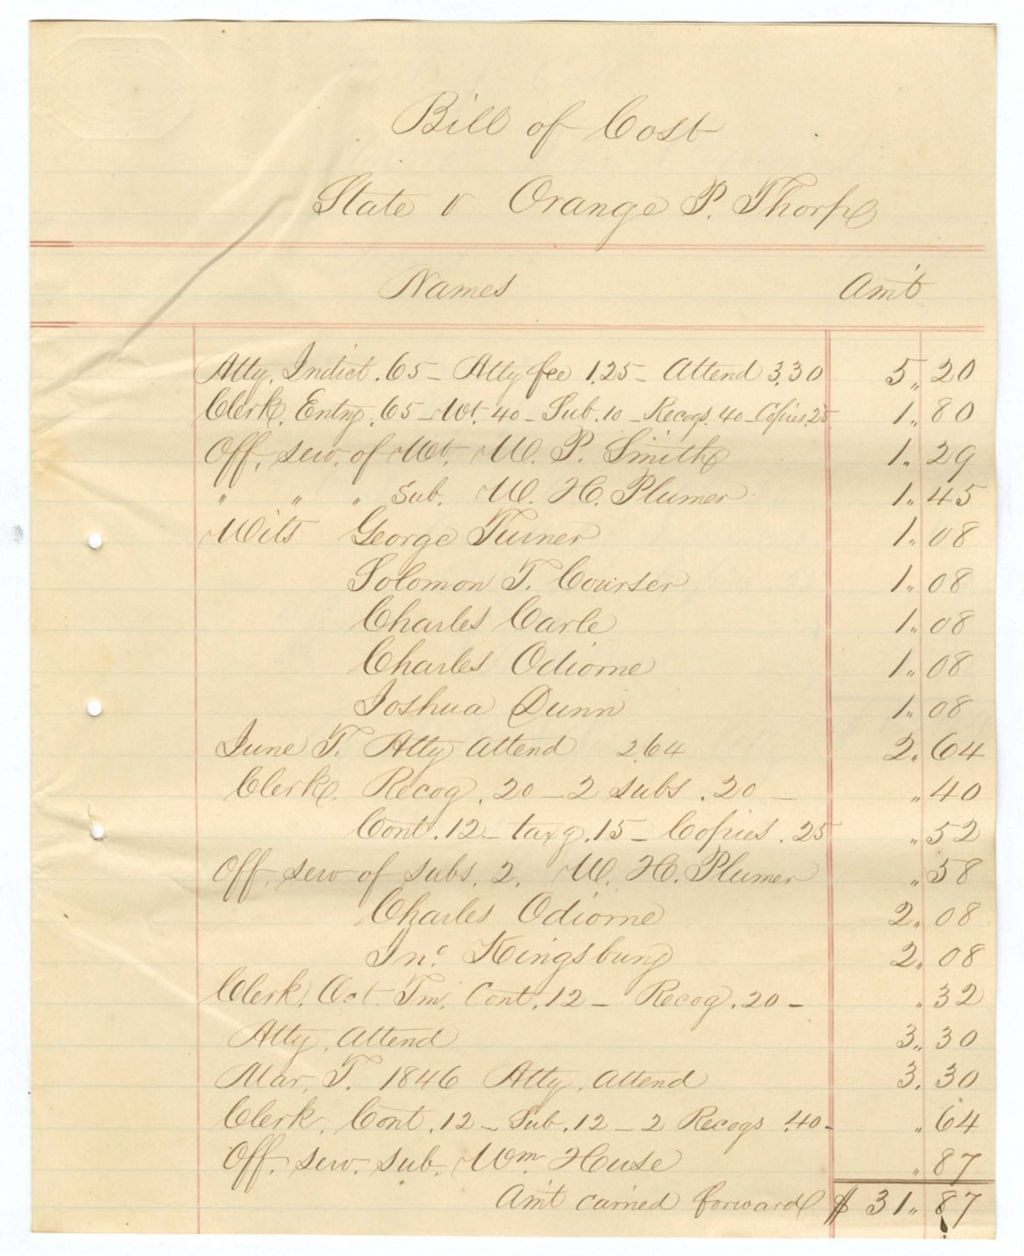 Bill of Cost
State v Orange P. Thorp
Names Amt
Atty. Indict. .65 - Atty fee 1.25 - Attend 3.30 5.. 20
Clerk. Entry. .65 - Wt. 40 - Sub. 10 - Recogs. 40 - Copies. 25 1.. 80
Off. serv. of Wt. W. P. Smith 1.. 29
" " " Sub. W. H. Plumer 1.. 45
Wits George Turner 1.. 08
Solomon T. Courser 1.. 08
Charles Carle 1.. 08
Charles Odiorne 1.. 08
Joshua Dunn 1.. 08
June T. Atty attend 2.64 2.. 64
Clerk. Recog. .20 - 2 subs .20 - .. 40
Cont. .12 - taxg. .15 - Copies .25 .. 52
Off. serv of subs. 2. W. H. Plumer .. 58
Charles Odiorne 2.. 08
Jno. Kingsbury 2.. 08
Clerk. Oct. Tm. Cont. .12 - Recog. .20 - .. 32
Atty. Attend 3.. 30
Mar. T. 1846 Atty. attend 3. 30
Clerk. Cont. .12 - Sub. .12 - 2 Recogs .40 - .. 64
Off. serv. sub. Wm. House .. 87
Amt carried forward $ 31.. 87